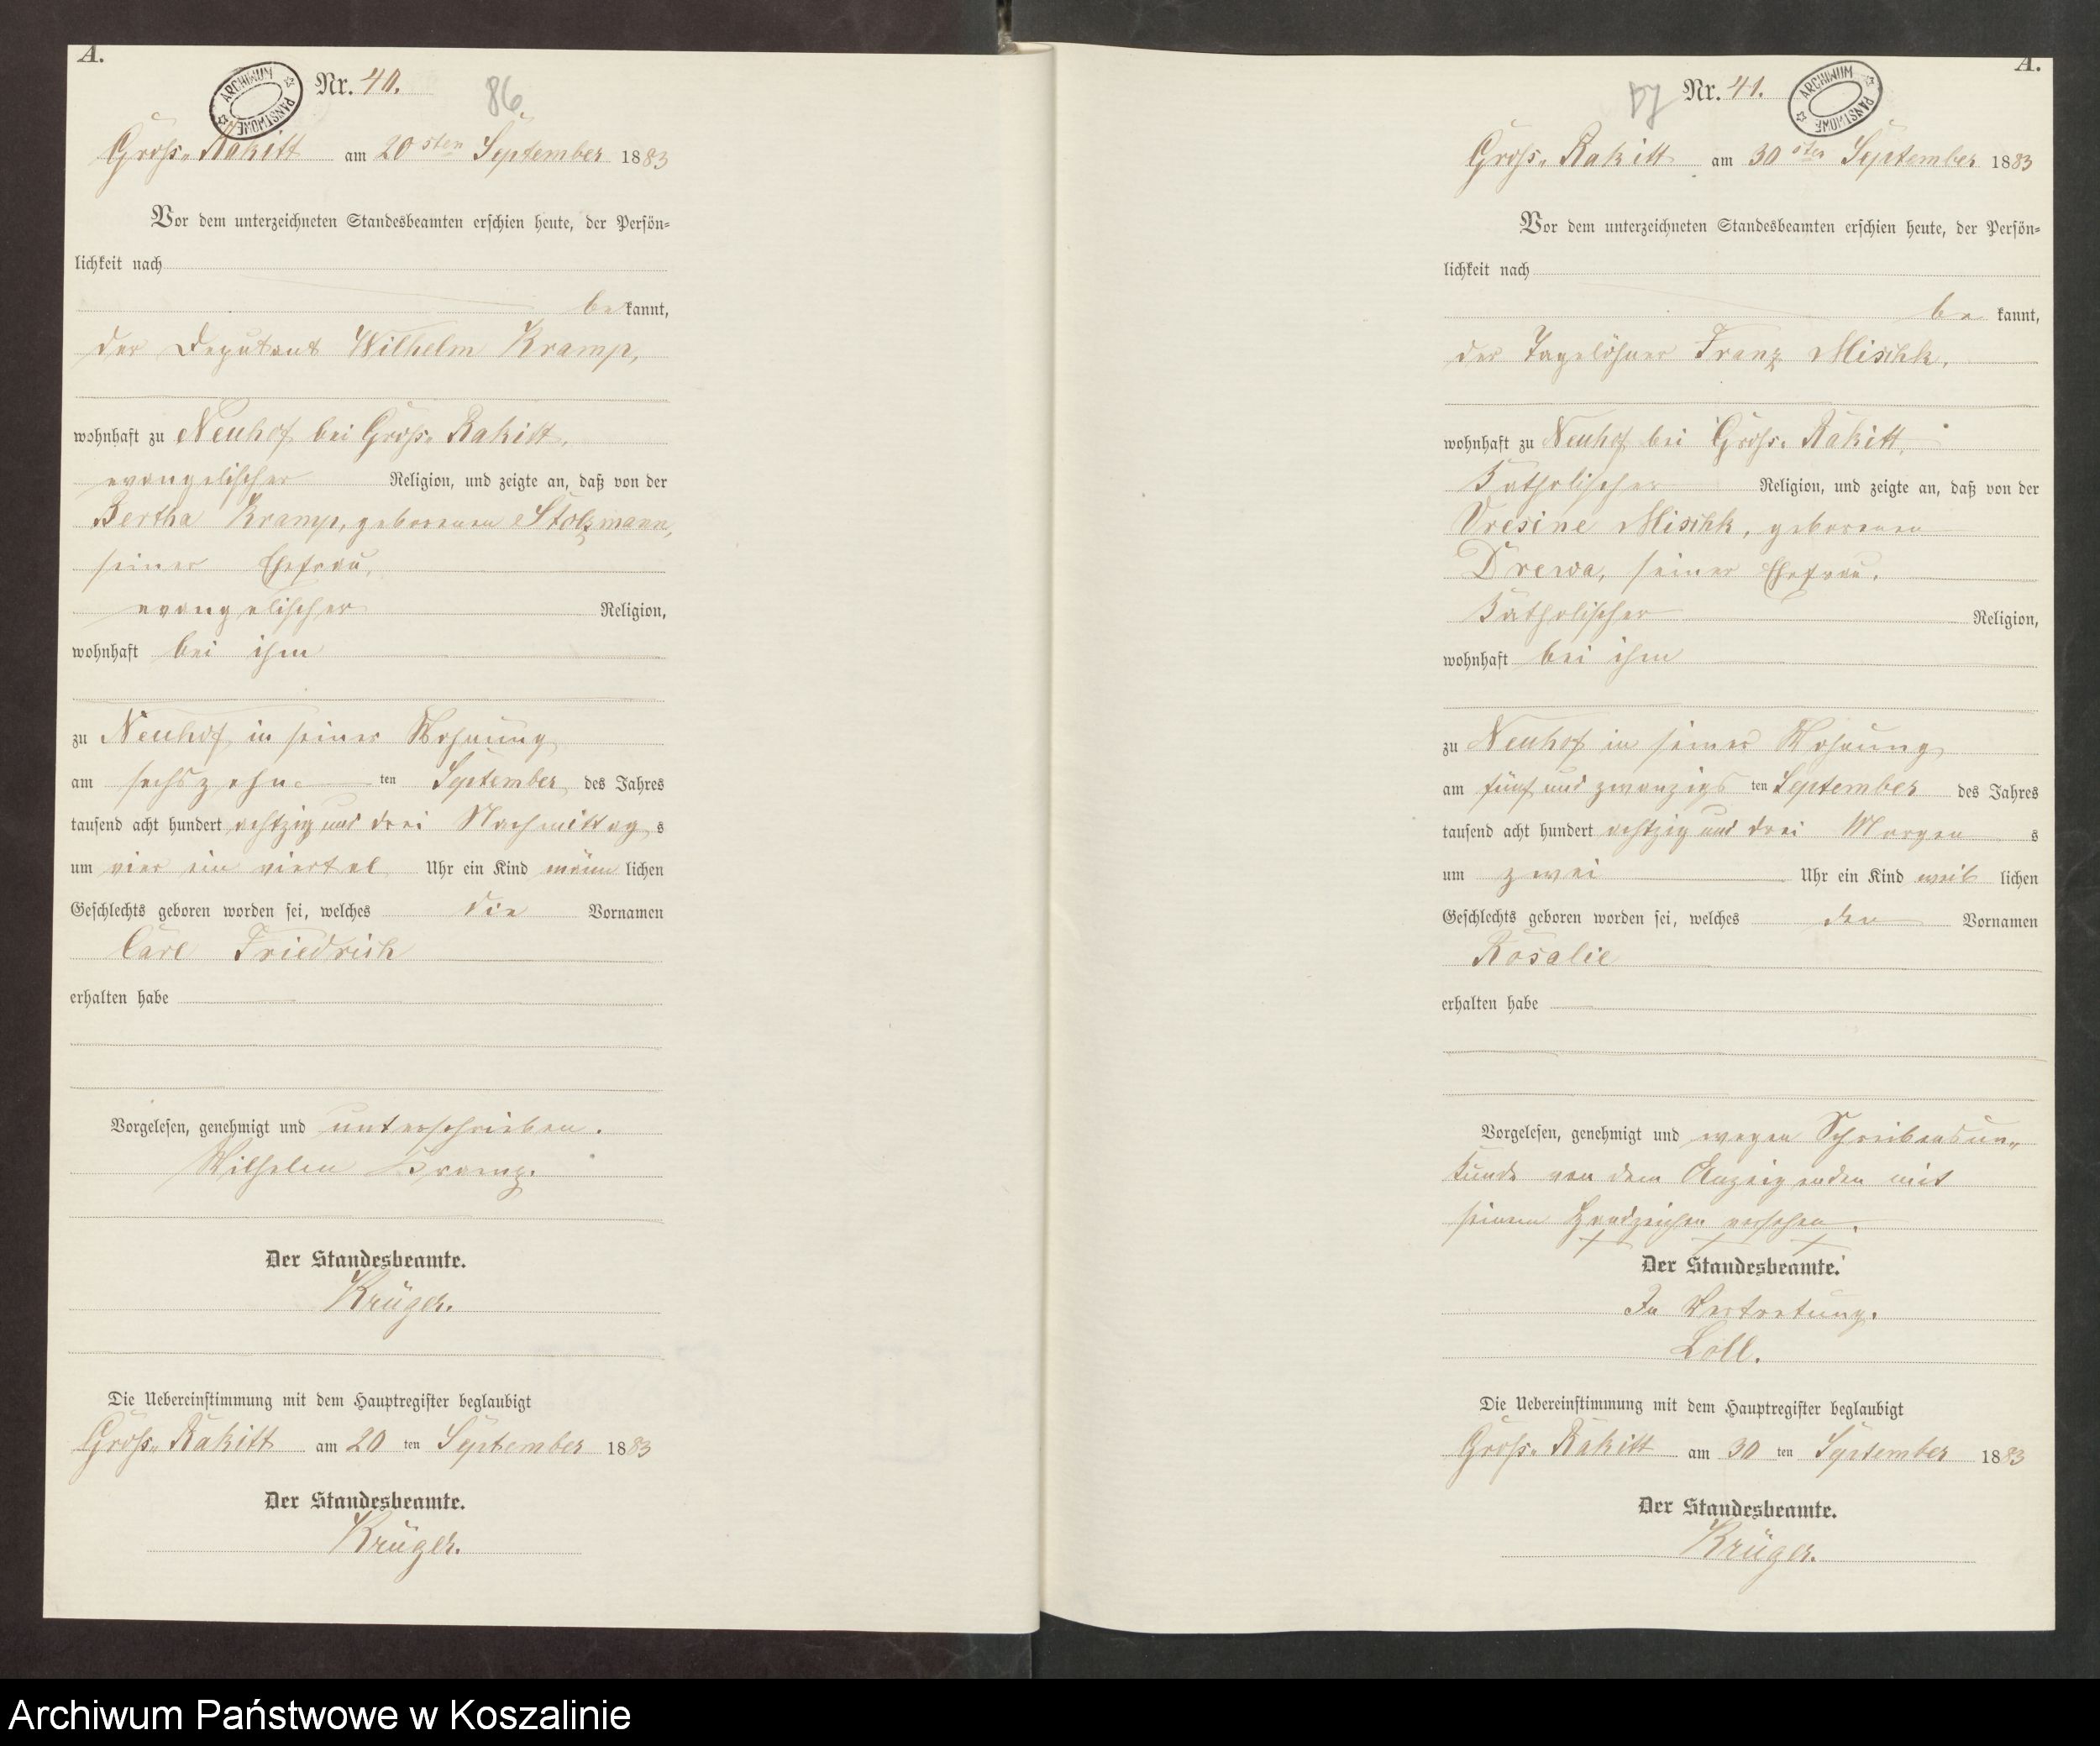 A.
ARCHIWUM PAŃSTWOWE
Nr. 40.
86
Gross. Rakitt am 20 sten September 1883
Vor dem unterzeichneten Standesbeamten erschien heute, der Persön=
lichkeit nach
be kannt,
der Deputant Wilhelm Kramp,
wohnhaft zu Neuhof bei Gross. Rakitt,
evangelischer Religion, und zeigte an, daß von der
Bertha Kramp, geborenen Stolzmann,
seiner Ehefrau,
evangelischer Religion,
wohnhaft bei ihm
zu Neuhof in seiner Wohnung
am sechszehn ten September des Jahres
tausend acht hundert achtzig und drei Nachmittag s
um vier ein viertel Uhr ein Kind männ lichen
Geschlechts geboren worden sei, welches die Vornamen
Carl Friedrich
erhalten habe
Vorgelesen, genehmigt und unterschrieben.
Wilhelm Kramp.
Der Standesbeamte.
Krüger.
Die Uebereinstimmung mit dem Hauptregister beglaubigt
Gross. Rakitt am 20 ten September 1883
Der Standesbeamte.
Krüger.
A.
Nr. 41.
ARCHIWUM PAŃSTWOWE
Gross. Rakitt am 30 sten September 1883
Vor dem unterzeichneten Standesbeamten erschien heute, der Persön=
lichkeit nach
be kannt,
der Tagelöhner Franz Mischk,
wohnhaft zu Neuhof bei Gross. Rakitt,
Katholischer Religion, und zeigte an, daß von der
Uresine Mischk, geborenen
Drewa, seiner Ehefrau,
Katholischer Religion,
wohnhaft bei ihm
zu Neuhof in seiner Wohnung
am fünf und zwanzigs ten September des Jahres
tausend acht hundert achtzig und drei Morgen s
um zwei Uhr ein Kind weib lichen
Geschlechts geboren worden sei, welches den Vornamen
Rosalie
erhalten habe
Vorgelesen, genehmigt und wegen Schreibensun„
kunde von dem Anzeigenden mit
seinem Handzeichen versehen.
+ + +
Der Standesbeamte.
In Vertretung.
Loll.
Die Uebereinstimmung mit dem Hauptregister beglaubigt
Gross. Rakitt am 30 ten September 1883
Der Standesbeamte.
Krüger.
Archiwum Państwowe w Koszalinie